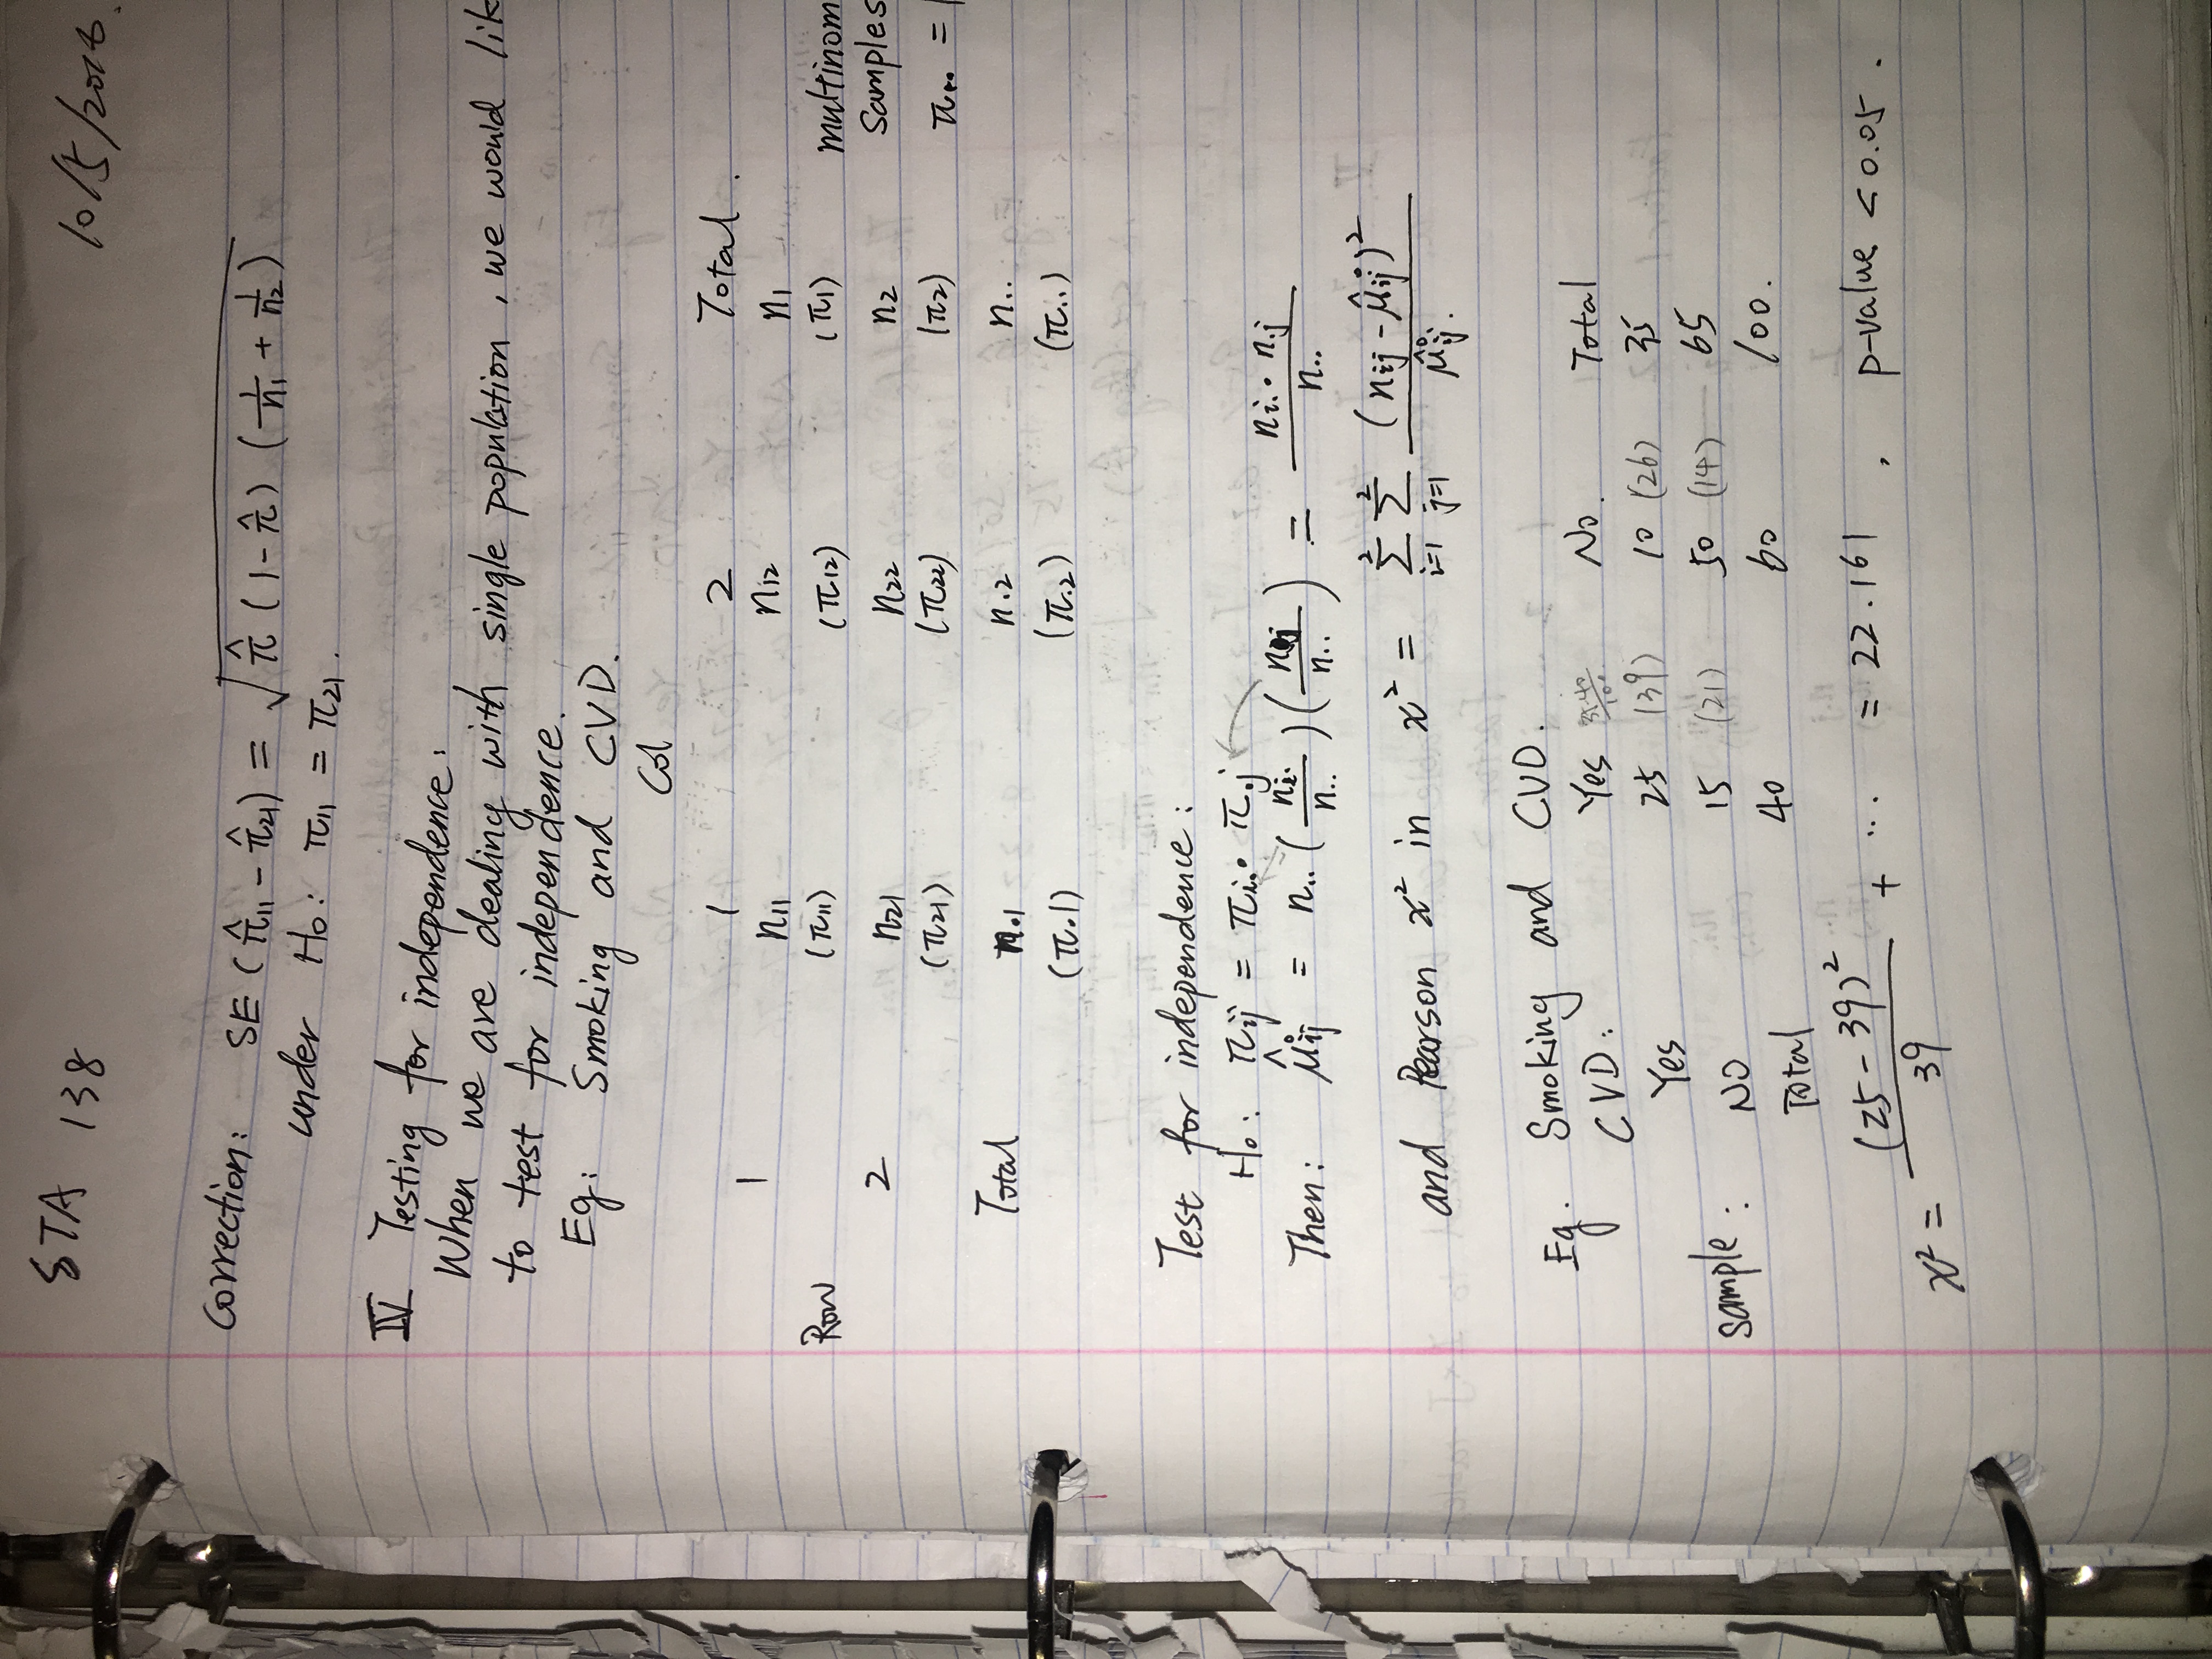 STA 138 10/5/2018.
Correction: SE (π̂₁₁ - π̂₂₁) = √(π̂ (1-π̂) (1/n₁ + 1/n₂))
under H₀: π₁₁ = π₂₁.
IV Testing for independence:
When we are dealing with single population, we would lik
to test for independence.
Eg: Smoking and CVD.
Col
1 2 Total.
1 n₁₁ n₁₂ n₁
Row (π₁₁) (π₁₂) (π₁) multinom
2 n₂₁ n₂₂ n₂ Samples
(π₂₁) (π₂₂) (π₂) π.. = 1
Total n.₁ n.₂ n..
(π.₁) (π.₂) (π..)
Test for independence:
H₀: πij = πi. · π.j
Then: μ̂°ij = n.. (ni./n..) (n.j/n..) = ni. · n.j / n..
and Pearson x² in x² = Σ(i=1 to 2) Σ(j=1 to 2) (nij - μ̂°ij)² / μ̂°ij.
Eg. Smoking and CVD.
CVD: Yes 35·40/100 No. Total
Yes 25 (39) 10 (26) 35
sample: No 15 (21) 50 (14) 65
Total 40 60 100.
x² = (25-39)²/39 + ... = 22.161, p-value < 0.05.